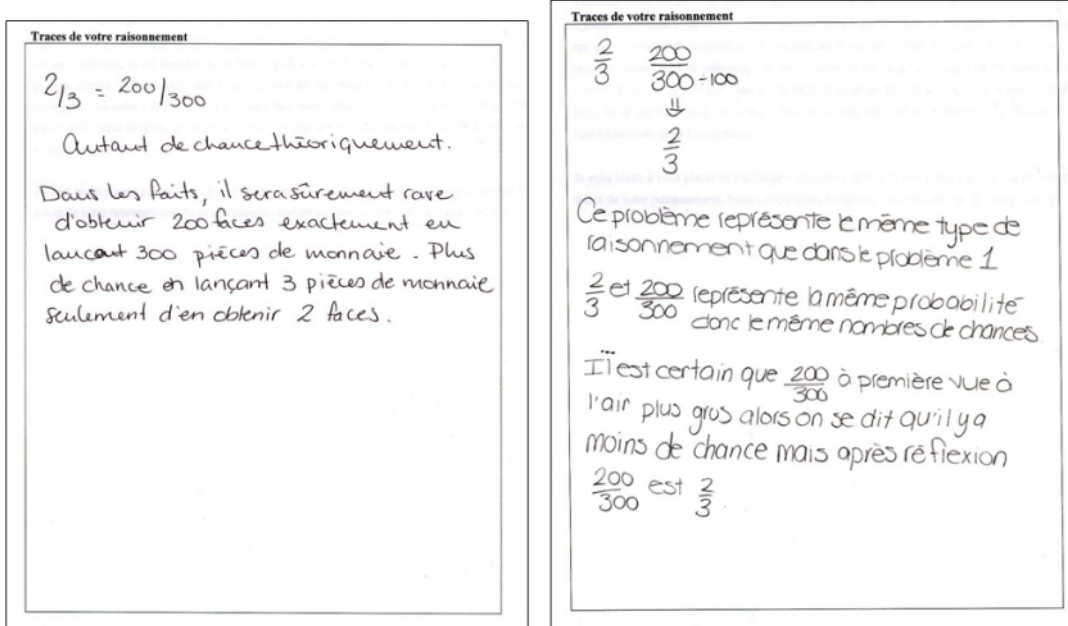 Traces de votre raisonnement
2/3 = 200/300
Autant de chance théoriquement.
Dans les faits, il sera sûrement rare
d'obtenir 200 faces exactement en
lançant 300 pièces de monnaie. Plus
de chance en lançant 3 pièces de monnaie
seulement d'en obtenir 2 faces.
Traces de votre raisonnement
2/3 200/300 ÷100
⇓
2/3
Ce problème représente le même type de
raisonnement que dans le problème 1
2/3 et 200/300 représente la même probabilité
donc le même nombres de chances.
Il est certain que 200/300 à première vue à
l'air plus gros alors on se dit qu'il y a
moins de chance mais après réflexion
200/300 est 2/3